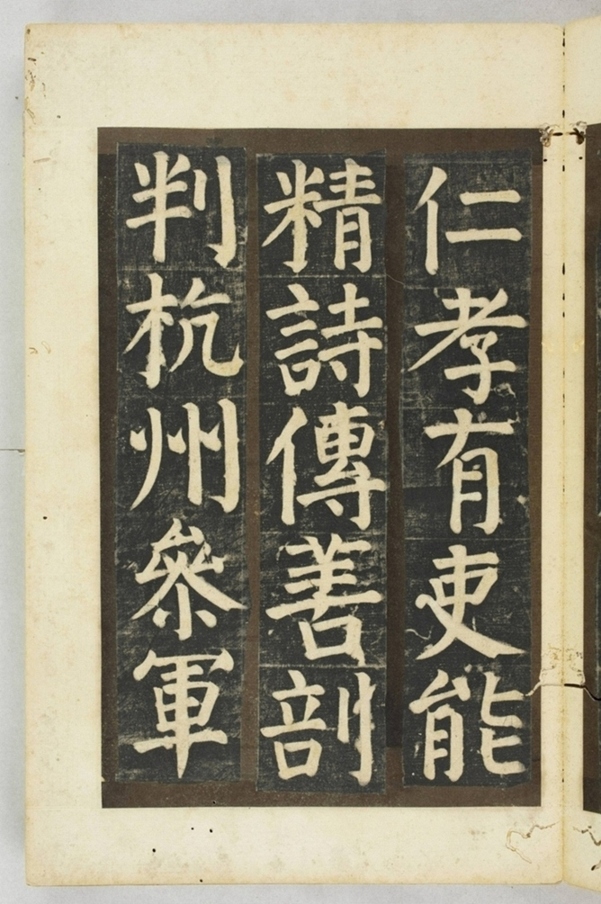 仁孝有吏能
精詩傳善剖
判杭州參軍